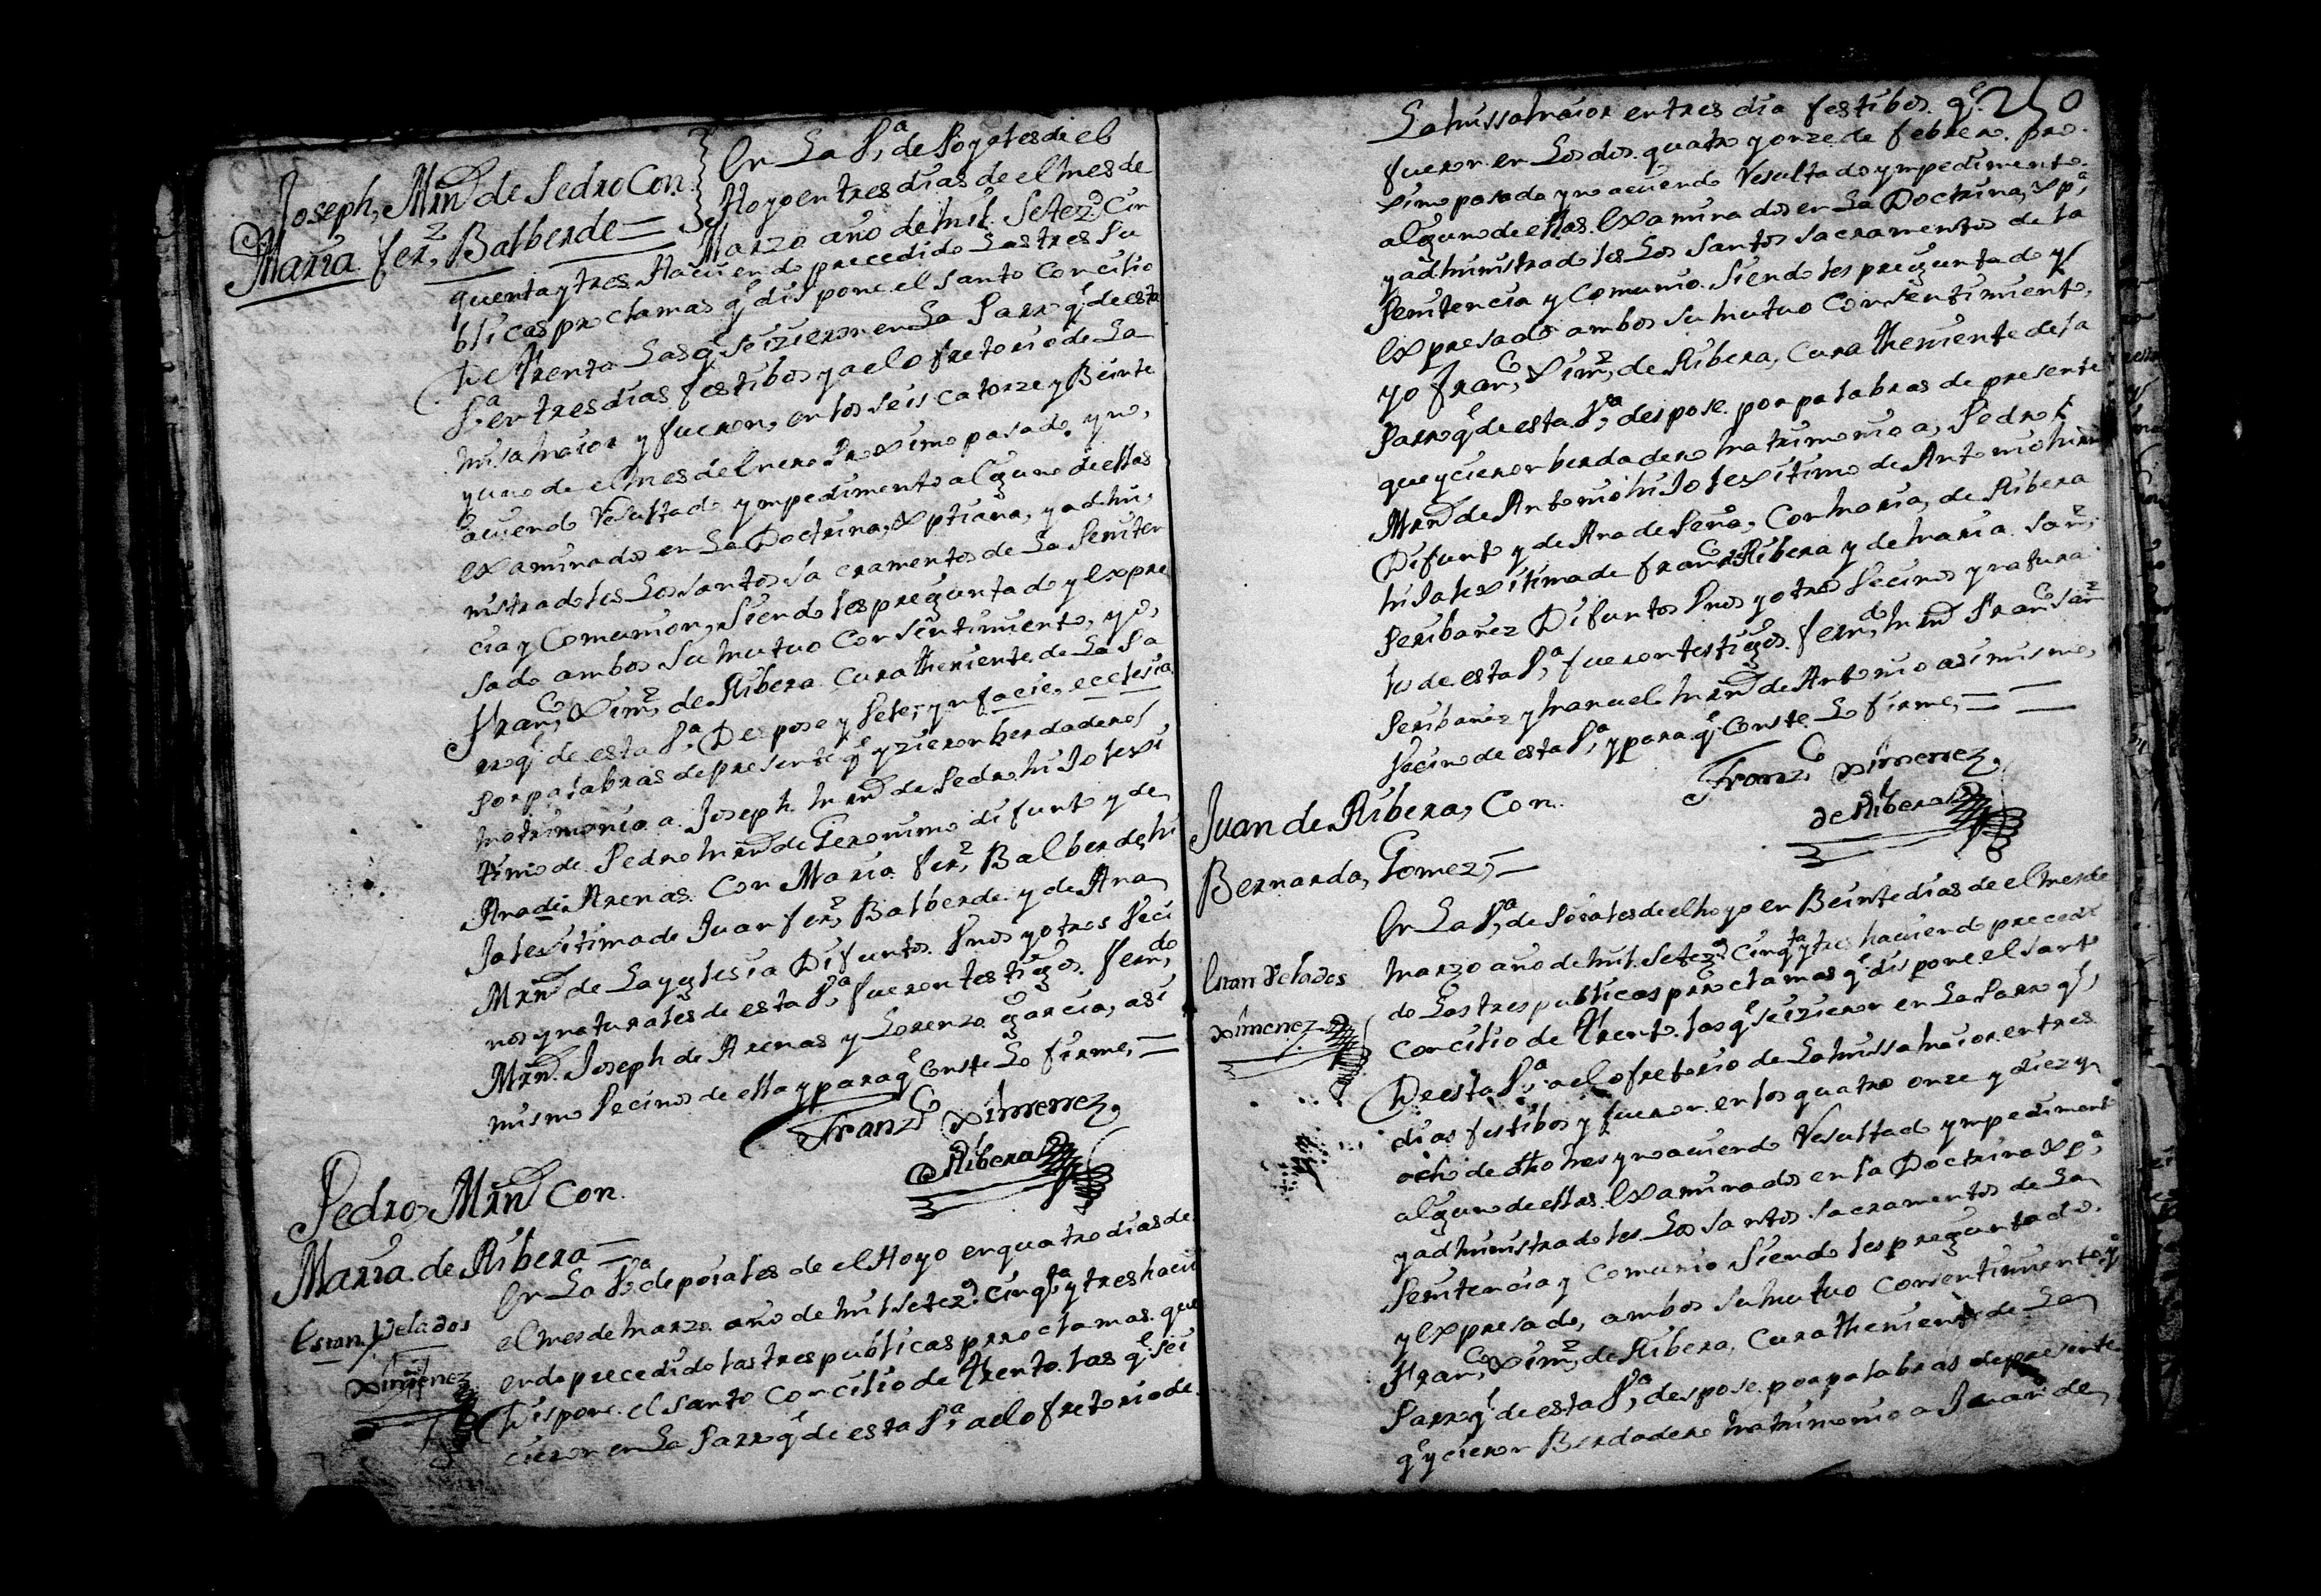 Joseph, Mrnd de Pedro Con
Maria ferz, Balberde =
En La Va, de Poyales de el
Hoyo en tres dias de el mes de
Marzo año de mil Setezs Cin
quenta y tres Hauiendo precedido Las tres Pu
blicas proclamas qe dispone el Santo Concilio
de Trento Las qe se izieron en La Parroql de esta
Va en tres dias festibos y a el ofretorio de La
misa maior y fueron, en los seis catorze y Beinte
y uno de el mes de Enero Proximo pasado, y no,
auiendo Resultado ympedimento alguno de ellas
examinados en La Doctrina, Xptiana, y admi,
nistradoles Los Santos Sacramentos de La Peniten
cia y Comunion, Siendoles preguntado y expre
sado ambos Su mutuo Consentimiento, yo,
Franco, Ximz de Ribera Cura Theniente de La Pa
rroql de esta Va, Despose y Bele, yn facie, ecclesia
Por palabras de presente qe yzieron berdadero
matrimonio a Joseph mrnd de Pedro hijo lexi
timo de Pedro mrnd de Geronimo difunto y de
Ana de Arenas Con Maria ferz, Balberde, hi
ja lexitima de Juan ferz, Balberde y de Ana
Mrnd de La yglesia Difuntos Vnos y otros Veci
nos y naturales de esta Va fueron testigos ferndo,
Mrnd. Joseph de Arenas y Lorenzo garcia, asi
mismo Vecinos de ella y para qe Conste Lo firme, =
Franzco Ximenez,
Ribera
Pedro Mrnd Con
Maria de Ribera =
Estan Velados
Ximenez
En La Va de poiales de el Hoyo en quatro dias de
el mes de marzo año de mil setezs Cinqta y tres haui
endo precedido las tres publicas proclamas que
Dispone el Santo Concilio de Trento las qe sei
cieron en La Parroql de esta Va, a el ofretorio de
250
La missa maior en tres dia festibos qe
fueron en Los dos quatro y onze de febrero pro
ximo pasado y no auiendo Resultado ympedimento
alguno de ellas Examinados en La Doctrina, Xpa,
y administradoles Los Santos Sacramentos de la
Penitencia y Comunio Siendoles preguntado y
Expresado ambos Su mutuo Consentimiento,
yo Franco, Ximz, de Ribera, Cura Theniente de la
Parroql de esta Va, despose por palabras de presente
que ycieron berdadero matrimonio a, Pedro
Mrnd de Antonio hijo lexitimo de Antonio mrnd
Difunto y de Ana de Peña, Con maria, de Ribera
hija lexitima de franco Ribera y de maria Sanz,
Peribañez Difuntos Vnos y otros Vecinos y natura
les de esta Va, fueron testigos ferndo, mrnd Franco Sanz
Peribañez y manuel mrnd de Antonio asimismo,
Vecino de esta Va, y para qe Conste Lo firme, =
Franzco Ximenez,
de Ribera
Juan de Ribera, Con
Bernarda, Gomez, =
Estan Velados
Ximenez
En La Va, de Poiales de el hoyo en Beinte dias de el mes de
marzo año de mil Setezs Cinqta y tres hauiendo precedi
do Las tres publicas proclamas qe dispone el Santo
Concilio de Trento las qe se izieron en La Parroql,
De esta Va, a el ofretorio de La missa maior en tres
dias festibos y fueron en los quatro onze y diez y
ocho de dho mes y no auiendo Resultado ympedimento
alguno de ellas Examinados en la Doctrina Xpa,
y administradoles Los Santos Sacramentos de La
Penitencia y Comunio Siendoles preguntado
y Expresado, ambos Su mutuo Consentimiento yo
Franco, Ximz, de Ribera, Cura Theniente de La
Parroql de esta Va, despose por palabras de presente
qe ycieron Berdadero matrimonio a Juan de